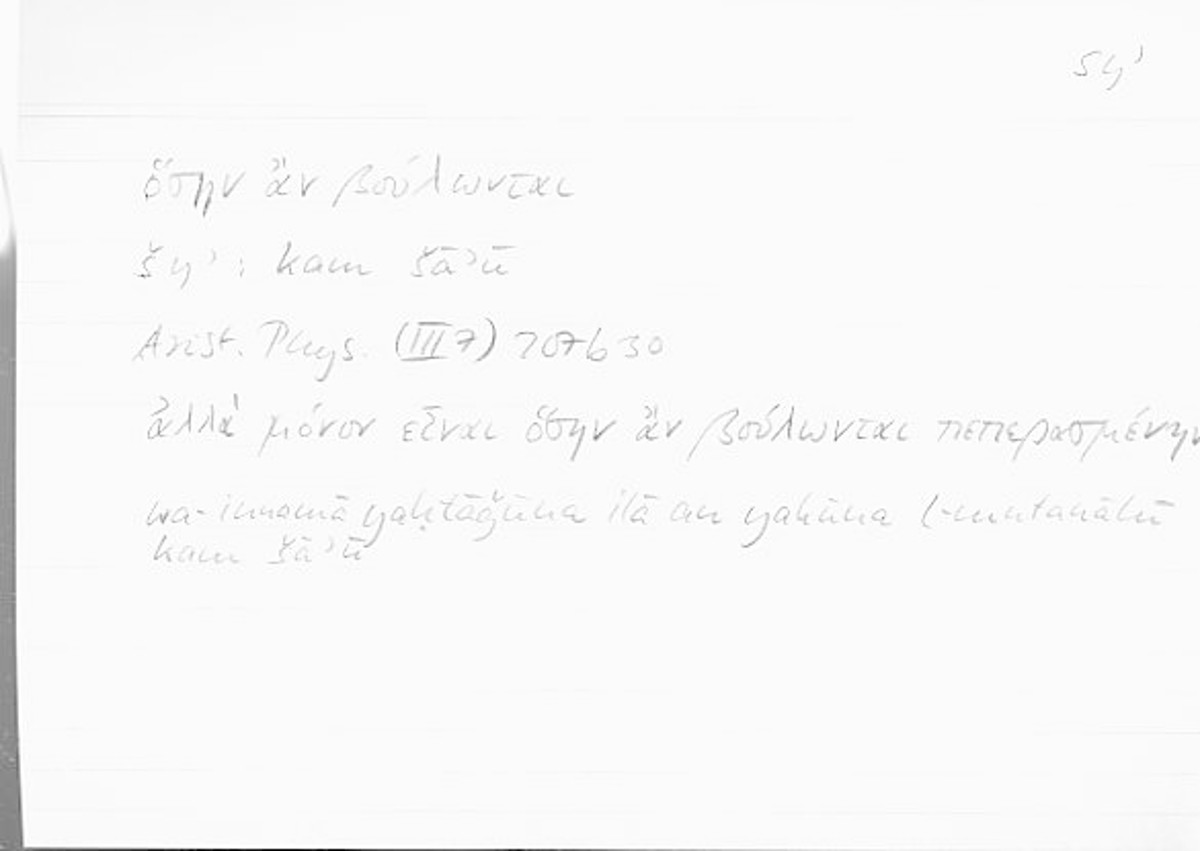 šyʾ
ὅσην ἂν βούλωνται
šyʾ : kam šāʾū
Arist. Phys. (III 7) 207b30
ἀλλὰ μόνον εἶναι ὅσην ἂν βούλωνται πεπερασμένην
wa-innamā yaḥtāǧūna ilā an yakūna l-mutanāhī
kam šāʾū